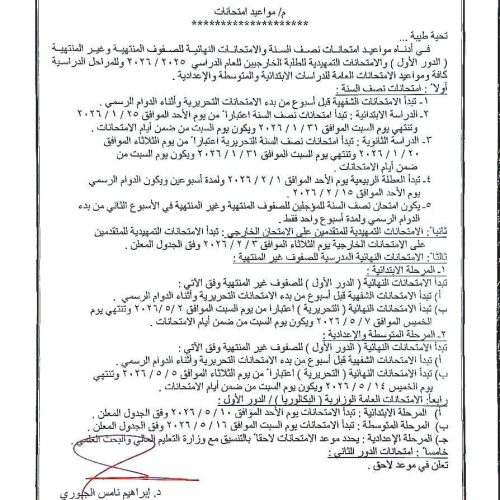 م/ مواعيد امتحانات
********************
تحية طيبة ..
في أدناه مواعيد امتحانات نصف السنة والامتحانات النهائية للصفوف المنتهية وغير المنتهية
( الدور الأول ) والامتحانات التمهيدية للطلبة الخارجيين للعام الدراسي ٢٠٢٥ / ٢٠٢٦ وللمراحل الدراسية
كافة ومواعيد الامتحانات العامة للدراسات الابتدائية والمتوسطة والإعدادية.
أولاً : امتحانات نصف السنة :
١- تبدأ الامتحانات الشفهية قبل أسبوع من بدء الامتحانات التحريرية وأثناء الدوام الرسمي .
٢- الدراسة الابتدائية : تبدأ امتحانات نصف السنة اعتباراً من يوم الأحد الموافق ٢٥ / ١ / ٢٠٢٦
وتنتهي يوم السبت الموافق ٣١ / ١ / ٢٠٢٦ ويكون يوم السبت من ضمن أيام الامتحانات.
٣- الدراسة الثانوية : تبدأ امتحانات نصف السنة التحريرية اعتباراً من يوم الثلاثاء الموافق
٢٠ / ١ / ٢٠٢٦ وتنتهي يوم السبت الموافق ٣١ / ١ / ٢٠٢٦ ويكون يوم السبت من
ضمن أيام الامتحانات .
٤- تبدأ العطلة الربيعية يوم الأحد الموافق ١ / ٢ / ٢٠٢٦ ولمدة أسبوعين ويكون الدوام الرسمي
يوم الأحد الموافق ١٥ / ٢ / ٢٠٢٦ .
٥- يكون امتحان نصف السنة للمؤجلين للصفوف المنتهية وغير المنتهية في الأسبوع الثاني من بدء
الدوام الرسمي ولمدة أسبوع واحد فقط .
ثانياً : الامتحانات التمهيدية للمتقدمين على الامتحان الخارجي : تبدأ الامتحانات التمهيدية للمتقدمين
على الامتحانات الخارجية يوم الثلاثاء الموافق ٣ / ٢ / ٢٠٢٦ وفق الجدول المعلن .
ثالثاً : الامتحانات النهائية المدرسية للصفوف غير المنتهية :
١- المرحلة الابتدائية :
تبدأ الامتحانات النهائية ( الدور الأول ) للصفوف غير المنتهية وفق الآتي :
أ) تبدأ الامتحانات الشفهية قبل أسبوع من بدء الامتحانات التحريرية وأثناء الدوام الرسمي .
ب) تبدأ الامتحانات النهائية ( التحريرية ) اعتباراً من يوم السبت الموافق ٢ / ٥ / ٢٠٢٦ وتنتهي يوم
الخميس الموافق ٧ / ٥ / ٢٠٢٦ ويكون يوم السبت من ضمن أيام الامتحانات .
٢- المرحلة المتوسطة والإعدادية :
تبدأ الامتحانات النهائية ( الدور الأول ) للصفوف غير المنتهية وفق الآتي :
أ) تبدأ الامتحانات الشفهية قبل أسبوع من بدء الامتحانات التحريرية وأثناء الدوام الرسمي.
ب) تبدأ الامتحانات النهائية ( التحريرية ) اعتباراً من يوم الثلاثاء الموافق ٥ / ٥ / ٢٠٢٦ وتنتهي
يوم الخميس ١٤ / ٥ / ٢٠٢٦ ويكون يوم السبت من ضمن أيام الامتحانات .
رابعاً: الامتحانات العامة الوزارية ( البكالوريا ) // الدور الأول :
أ) المرحلة الابتدائية : تبدأ الامتحانات يوم الأحد الموافق ١٠ / ٥ / ٢٠٢٦ وفق الجدول المعلن .
ب) المرحلة المتوسطة : تبدأ الامتحانات يوم السبت الموافق ١٦ / ٥ / ٢٠٢٦ وفق الجدول المعلن .
جـ) المرحلة الإعدادية : يحدد موعد الامتحانات لاحقاً بالتنسيق مع وزارة التعليم العالي والبحث العلمي
خامساً : امتحانات الدور الثاني :
تعلن في موعد لاحق .
د. إبراهيم نامس الجبوري